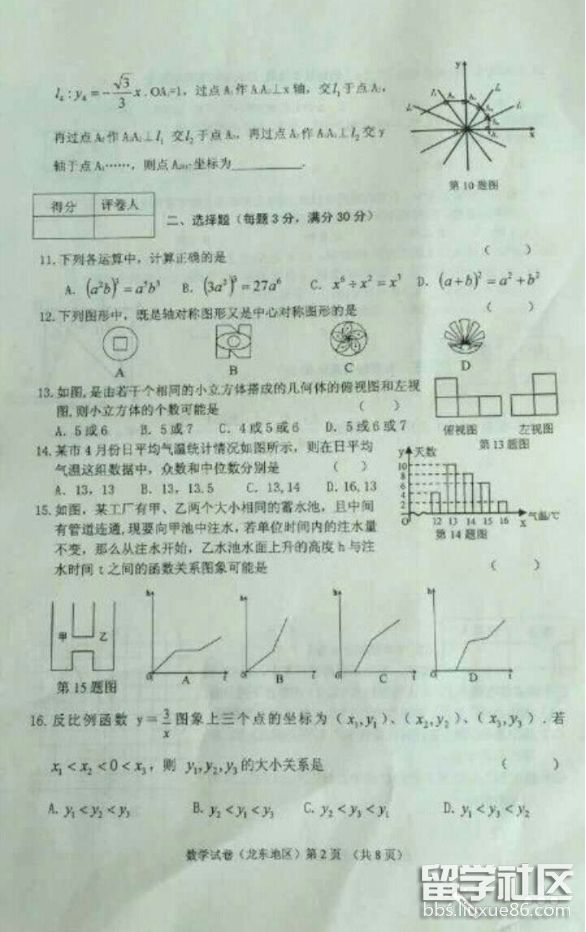 l₄:y₄=-√3/3 x.OA₁=1，过点A₁作A₁A₂⊥x轴，交l₁于点A₂，
再过点A₂作A₂A₃⊥l₁ 交l₂于点A₃，再过点A₃作A₃A₄⊥l₂交y
轴于点A₄……，则点 坐标为________.
第10题图
得分 评卷人
二、选择题（每题3分，满分30分）
11.下列各运算中，计算正确的是 （ ）
A. (a²b)²=a²b³ B. (3a²)³=27a⁶ C. x⁶÷x²=x³ D. (a+b)²=a²+b²
12.下列图形中，既是轴对称图形又是中心对称图形的是 （ ）
A B C D
13.如图,是由若干个相同的小立方体搭成的几何体的俯视图和左视
图,则小立方体的个数可能是 （ ）
A. 5或6 B. 5或7 C. 4或5或6 D. 5或6或7
俯视图 左视图
第13题图
14.某市4月份日平均气温统计情况如图所示，则在日平均
气温这组数据中，众数和中位数分别是 （ ）
A. 13, 13 B. 13, 13.5 C. 13,14 D. 16,13
y 天数
10
8
6
4
2
O 12 13 14 15 16 x 气温/℃
第14题图
15.如图，某工厂有甲、乙两个大小相同的蓄水池，且中间
有管道连通,现要向甲池中注水,若单位时间内的注水量
不变，那么从注水开始，乙水池水面上升的高度h与注
水时间t之间的函数关系图象可能是 （ ）
甲 乙
第15题图
h t A
h t B
h t C
h t D
16.反比例函数 y=3/x 图象上三个点的坐标为（x₁,y₁）、（x₂,y₂）、（x₃,y₃）.若
x₁<x₂<0<x₃，则 y₁,y₂,y₃的大小关系是 （ ）
A. y₁<y₂<y₃ B. y₂<y₁<y₃ C. y₂<y₃<y₁ D. y₁<y₃<y₂
数学试卷（龙东地区）第2页 （共8页）
留学社区
bbs.liuxue86.com